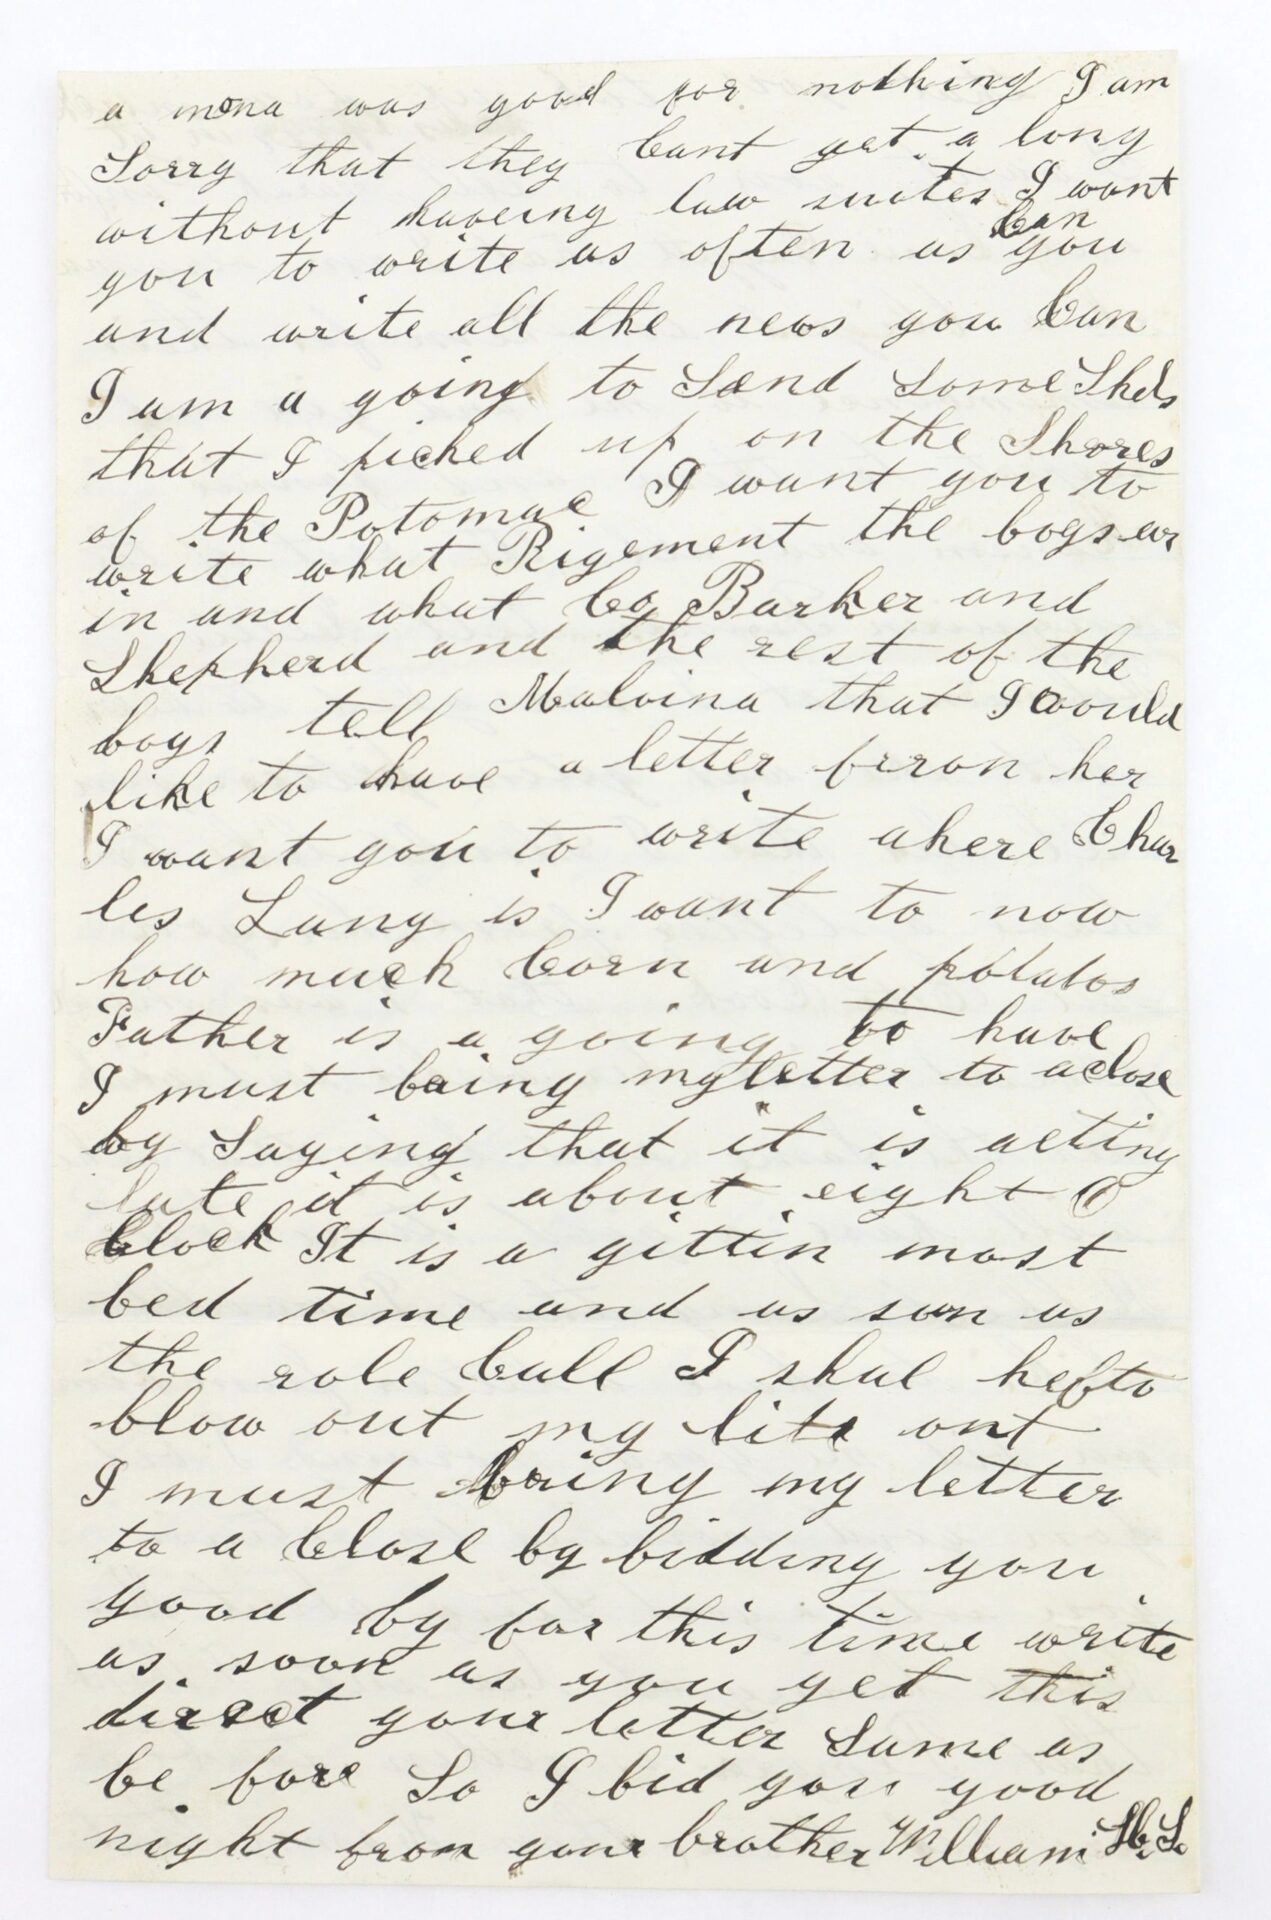 a mona was good for nothing I am
Sorry that they Cant get a long
without haveing law suites I want
you to write as often as Can you
and write all the news you Can
I am a going to Send Some Shels
that I picked up on the Shores
of the Potomac I want you to
write what Rigement the boys are
in and what Co Barker and
Shepherd and the rest of the
boys tell Malvina that I would
like to have a letter from her
I want you to write where Char
les Lang is I want to now
how much Corn and potatos
Father is a going to have
I must bring my letter to a close
by Saying that it is acting
late it is about eight O
Clock It is a gittin most
bed time and as soon as
the role Call I shal hefto
blow out my lite out
I must bring my letter
to a Close by bidding you
good by for this time write
as soon as you get this
direct your letter Same as
be fore So I bid you good
night from your brother William H. S.